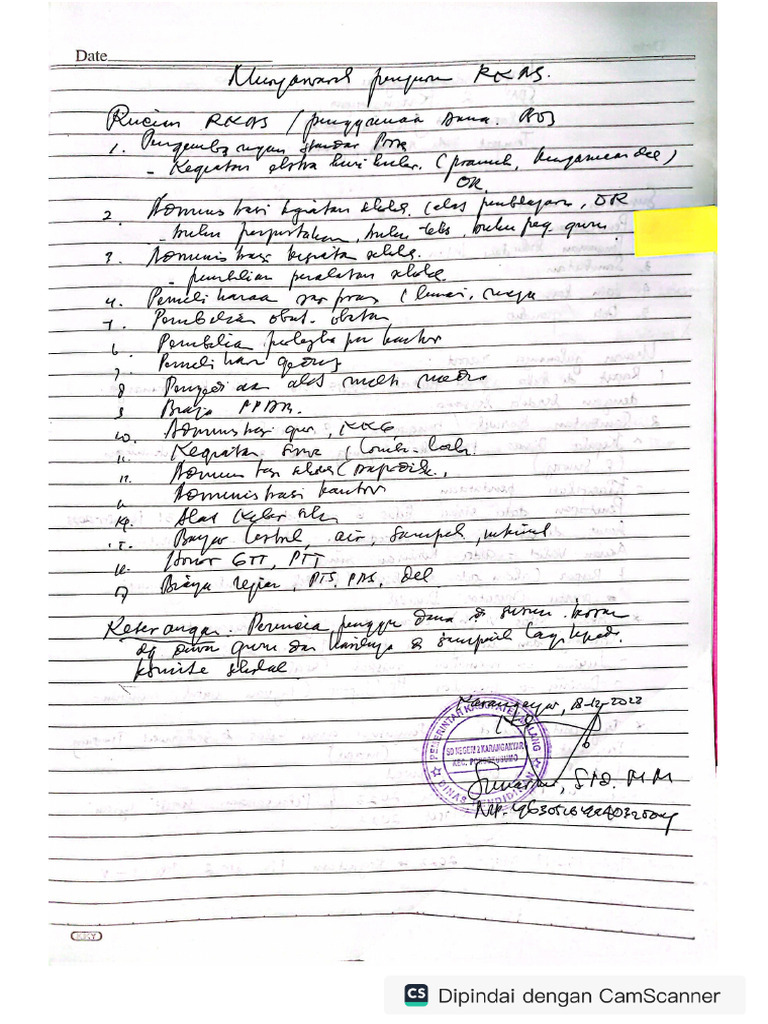 Date
Musyawarah penyusun RKAS.
Rincian RKAS / penggunaan dana BOS
1. Pengembangan standar
- Kegiatan ekstra kurikuler. (pramuka,
OR
2. Administrasi kegiatan sekolah (alat pembelajaran, OR
- buku perpustakaan, buku teks, buku peg. guru
3. Administrasi kegiatan sekolah.
- pembelian peralatan sekolah
4. Pemeliharaan sar pras (lemari, meja
Pembelian obat-obatan
6. Pembelian perlengkapan kantor
7. Pemeliharaan gedung
8 Penyediaan alat multi media
9 Biaya PPDB.
10. Administrasi guru, KKG
11. Kegiatan siswa / lomba-lomba
12. Administrasi sekolah (
Administrasi kantor
14. Alat
15. Bayar listrik, air, sampah, internet
16. Honor GTT, PTT
17 Biaya ujian, PTS, PAS, dll
Keterangan. penggu dana di susun
dg dewan guru dan hasilnya di sampaikan lagi kepada
komite sekolah
Karanganyar, 18-12-2022
PEMERINTAH KABUPATEN MALANG
SD NEGERI 2 KARANGANYAR
KEC. PONCOKUSUMO
DINAS PENDIDIKAN
S.Pd. MM
NIP.
KKY
CS Dipindai dengan CamScanner